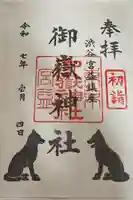 奉拝
初詣
渋谷宮益鎮座
御嶽神社
令和七年壱月四日